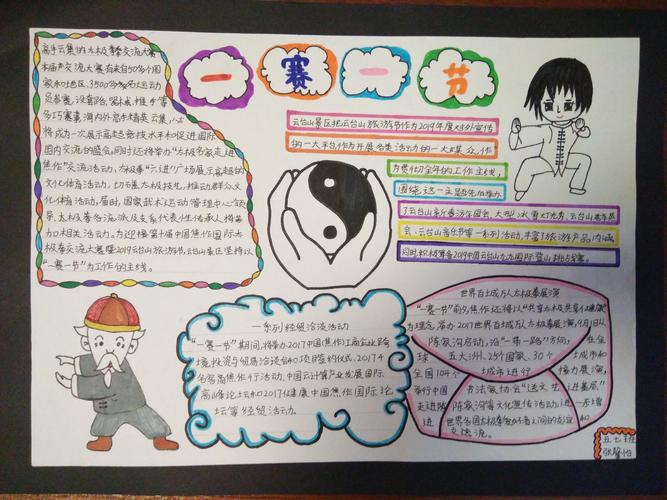 一赛一节
高手云集的太极拳交流大赛
本届交流大赛有来自50多个国
家和地区,3500多名运动
员参赛,设套路,器械,推手等
多项赛事,海内外高手精英云集,
将成为一次展示高超竞技水平和促进国际
国内交流的盛会,同时还将举办“太极名家走进
焦作”交流活动,太极拳“六进”广场展示高超的
文化体育活动,切磋太极拳技艺,推动群众文
化体育活动,届时,国家武术运动管理中心领
导,太极拳各流派及支系代表性传承人将参
加相关活动。为迎接第十届中国焦作国际太
极拳交流大赛暨2019云台山旅游节,云台山景区坚持以
“一赛一节”为工作的主线。
云台山景区把云台山旅游节作为2019年度对外宣传
的一大平台,作为开展各类活动的一大载体,作
为贯彻全年的工作主线,
围绕这一主题先后推出
了云台山新春游乐园会,大型冰雪灯光秀,云台山
会、云台山音乐节等一系列活动,丰富了旅游产品内涵
同时积极筹备2019中国云台山九九国际登山挑战赛。
一系列经贸洽谈活动
“一赛一节”期间,将举办2017中国(焦作)工商企业跨
境投资与贸易洽谈会和项目签约仪式,2017年
名商焦作行活动,中国云计算产业发展国际
高峰论坛和2017健康中国焦作国际论
坛等经贸活动。
世界百城万人太极拳展演
“一赛一节”前夕,焦作还将以“共享太极共享健康”
为理念,举办2017世界百城万人太极拳展演,9月1日从
陈家沟启动,沿“一带一路”方向,在全
球五大洲、25个国家、30个城市和
全国104个城市进行接力展演,
举行中国书法家协会“送文艺进基层”
走进陈家沟等文化宣传活动,进一步增
进世界各国太极拳爱好者之间的友谊和
交流。
五七班
张馨怡